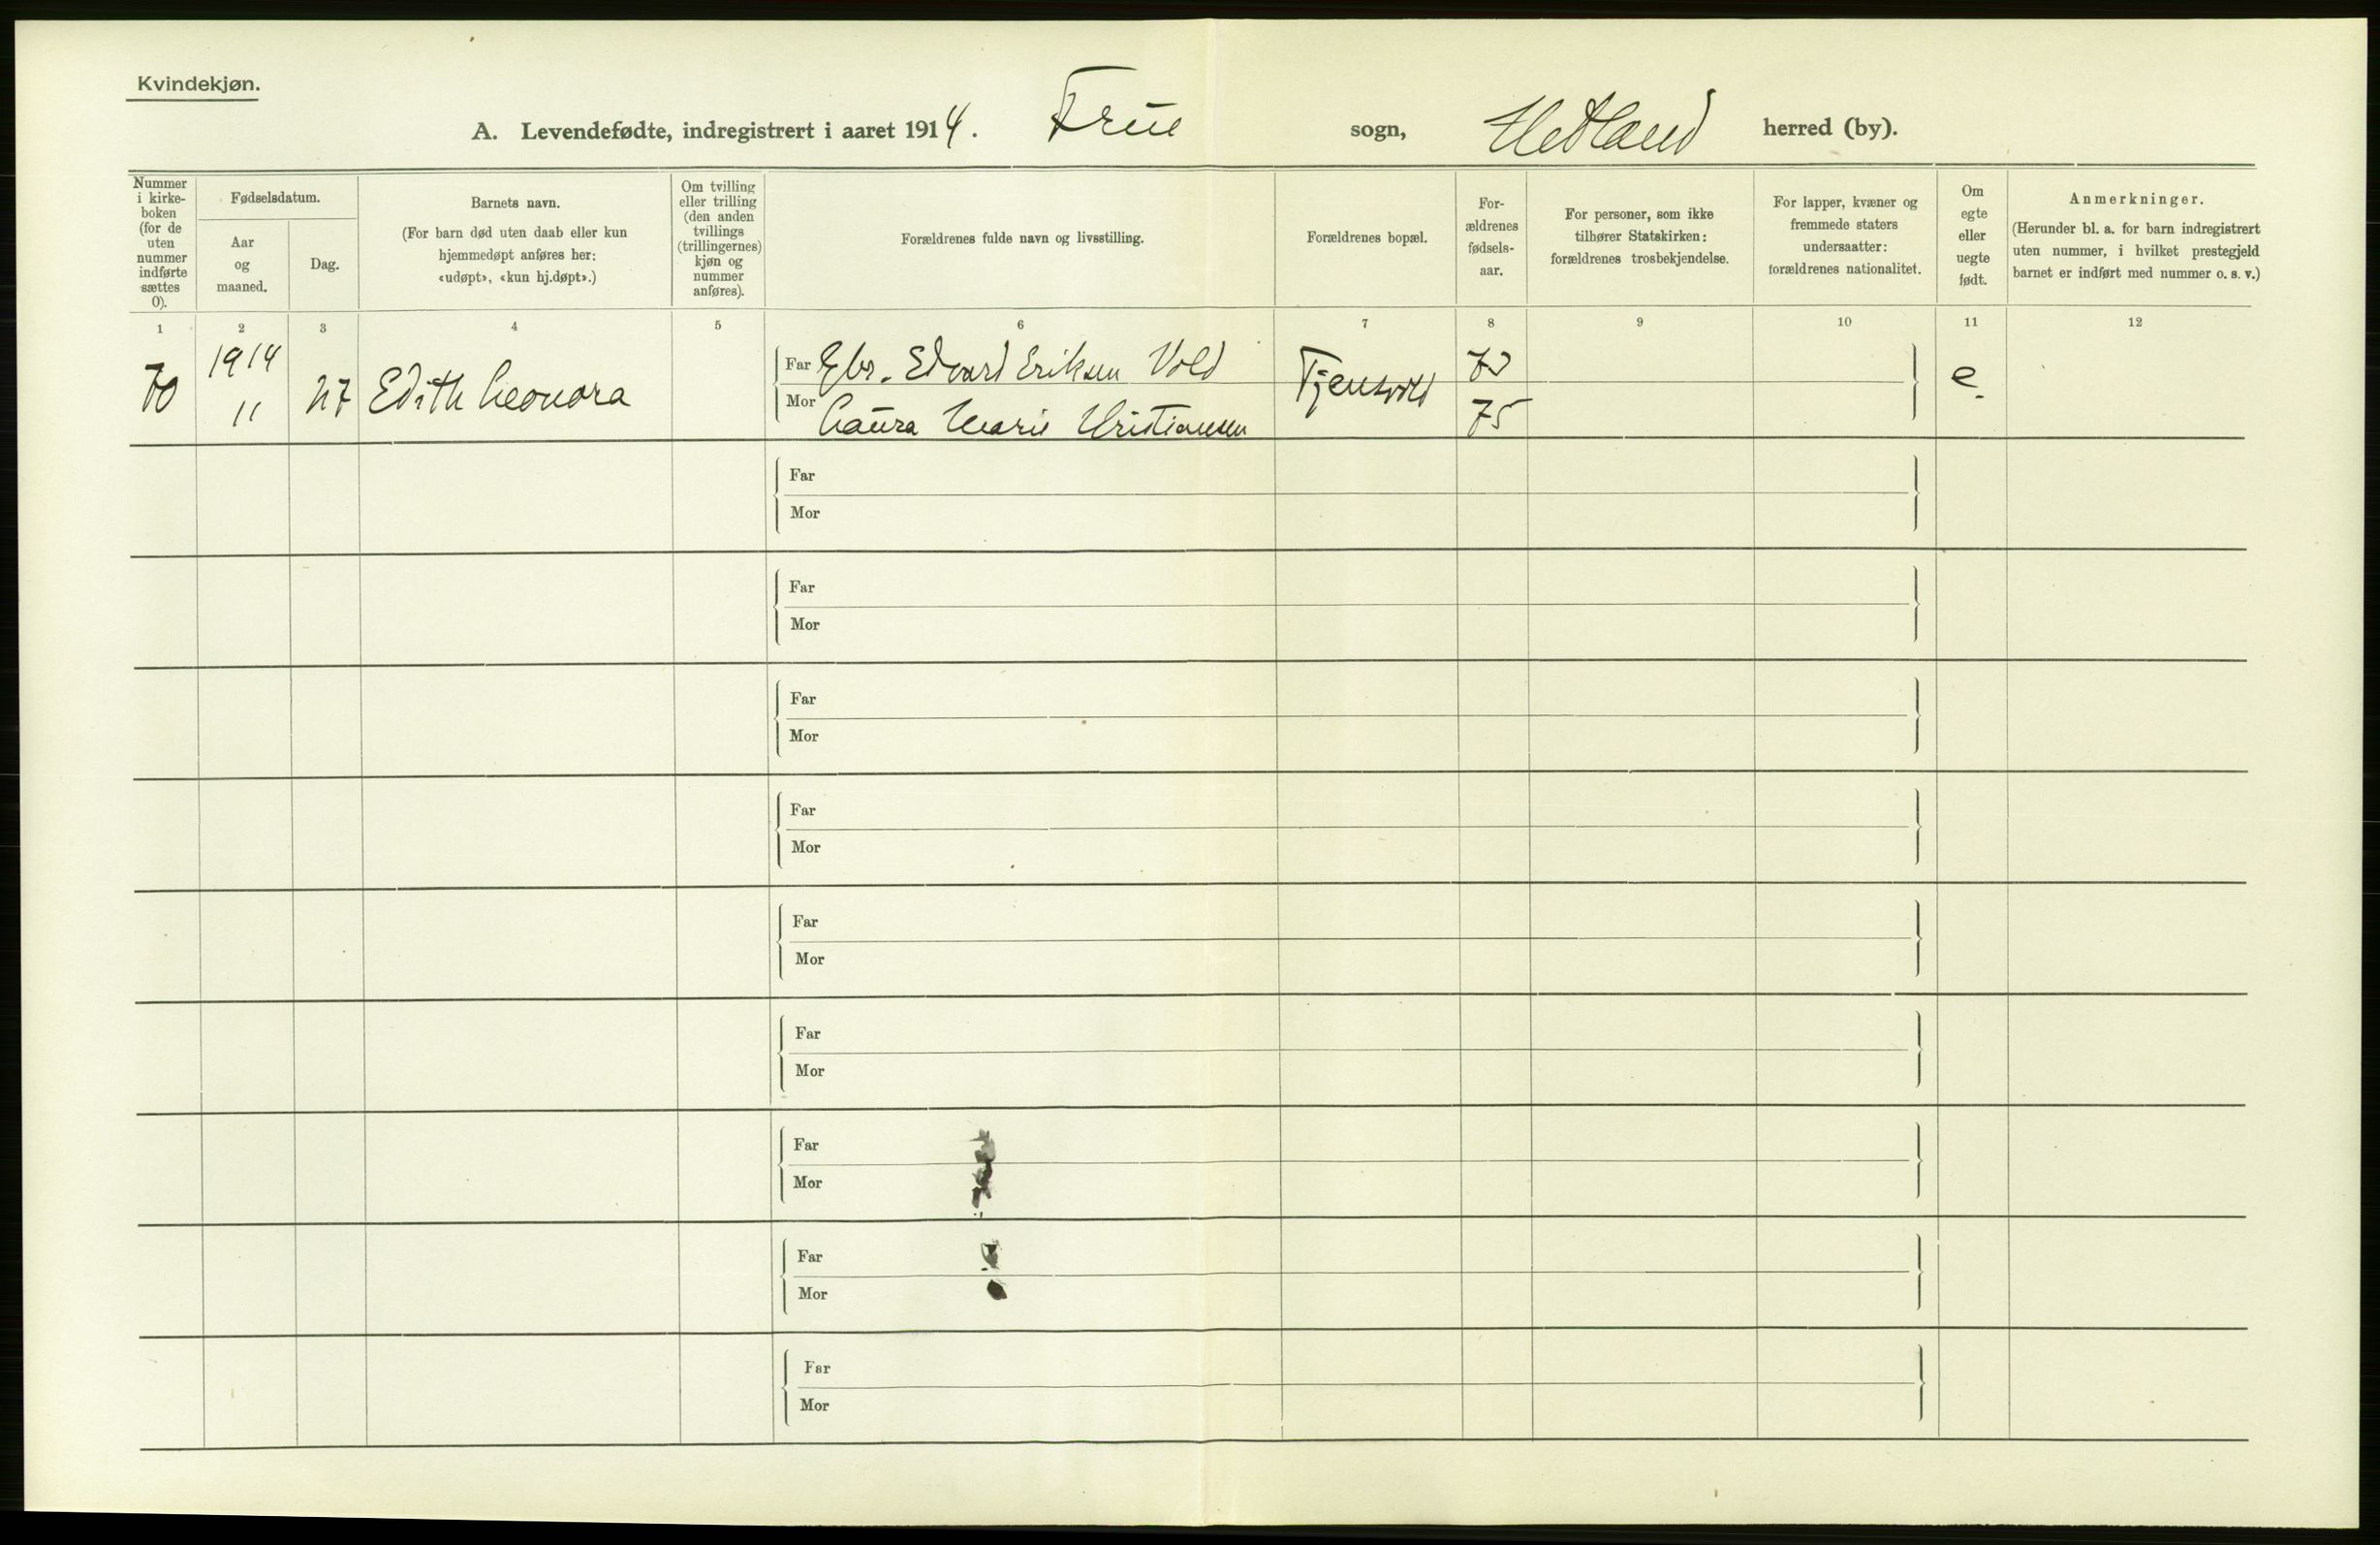 Kvindekjøn.
A. Levendefødte, indregistrert i aaret 1914. Frue sogn, Hetland herred (by).
Nummer i kirke-boken (for de uten nummer indførte sættes 0).
Fødselsdatum.
Aar og maaned.
Dag.
Barnets navn.
(For barn død uten daab eller kun hjemmedøpt anføres her: «udøpt», «kun hj.døpt».)
Om tvilling eller trilling (den anden tvillings (trillingernes) kjøn og nummer anføres).
Forældrenes fulde navn og livsstilling.
Forældrenes bopæl.
For-ældrenes fødsels-aar.
For personer, som ikke tilhører Statskirken: forældrenes trosbekjendelse.
For lapper, kvæner og fremmede staters undersaatter: forældrenes nationalitet.
Om egte eller uegte født.
Anmerkninger.
(Herunder bl. a. for barn indregistrert uten nummer, i hvilket prestegjeld barnet er indført med nummer o. s. v.)
1 2 3 4 5 6 7 8 9 10 11 12
70 1914 11 27 Edith Leonora
Far Gbr. Edvard Eriksen Vold
Mor Laura Marie Kristiansen
Tjensvold
75
e.
Far
Mor
Far
Mor
Far
Mor
Far
Mor
Far
Mor
Far
Mor
Far
Mor
Far
Mor
Far
Mor